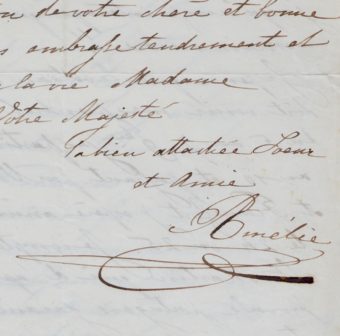 de votre chère et bonne
embrasse tendrement et
la vie Madame
Votre Majesté
la bien attachée Soeur
et Amie
Amélie